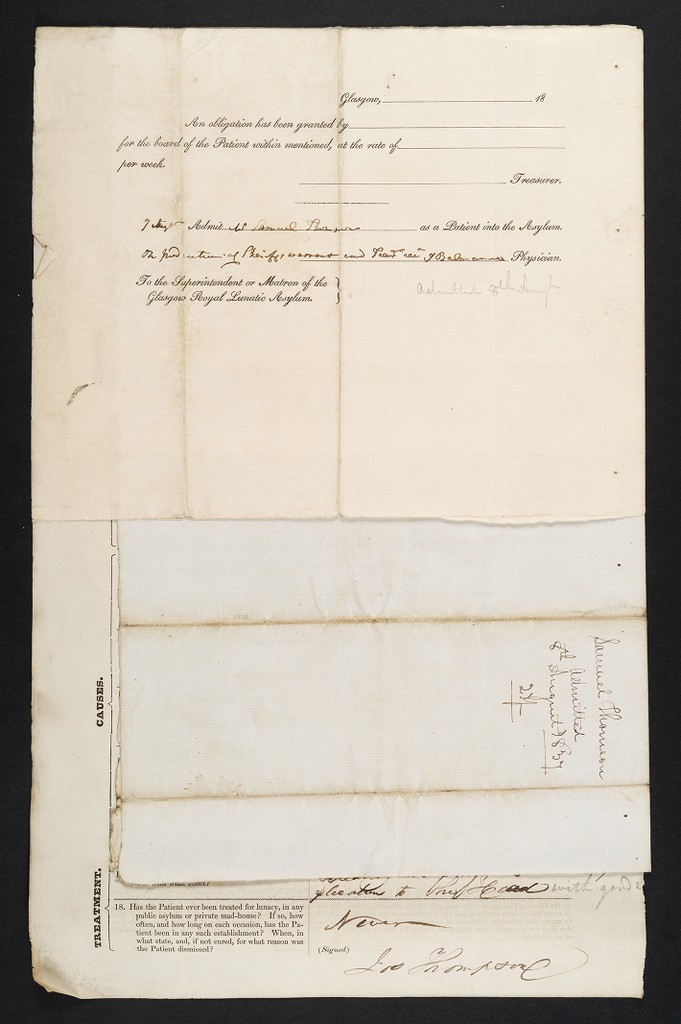 Glasgow, 18
An obligation has been granted by
for the board of the Patient within mentioned, at the rate of
per week.
Treasurer.
7 Augt Admit Mr Samuel Thomson as a Patient into the Asylum.
Sheriffs warrant and Physician.
To the Superintendent or Matron of the
Glasgow Royal Lunatic Asylum.
Admitted 8th Augt
Samuel Thomson
Admitted
8th August 1837
24
CAUSES.
TREATMENT.
to the Head with good
18. Has the Patient ever been treated for lunacy, in any
public asylum or private mad-house? If so, how
often, and how long on each occasion, has the Pa-
tient been in any such establishment? When, in
what state, and, if not cured, for what reason was
the Patient dismissed?
Never
(Signed)
Jos Thompson